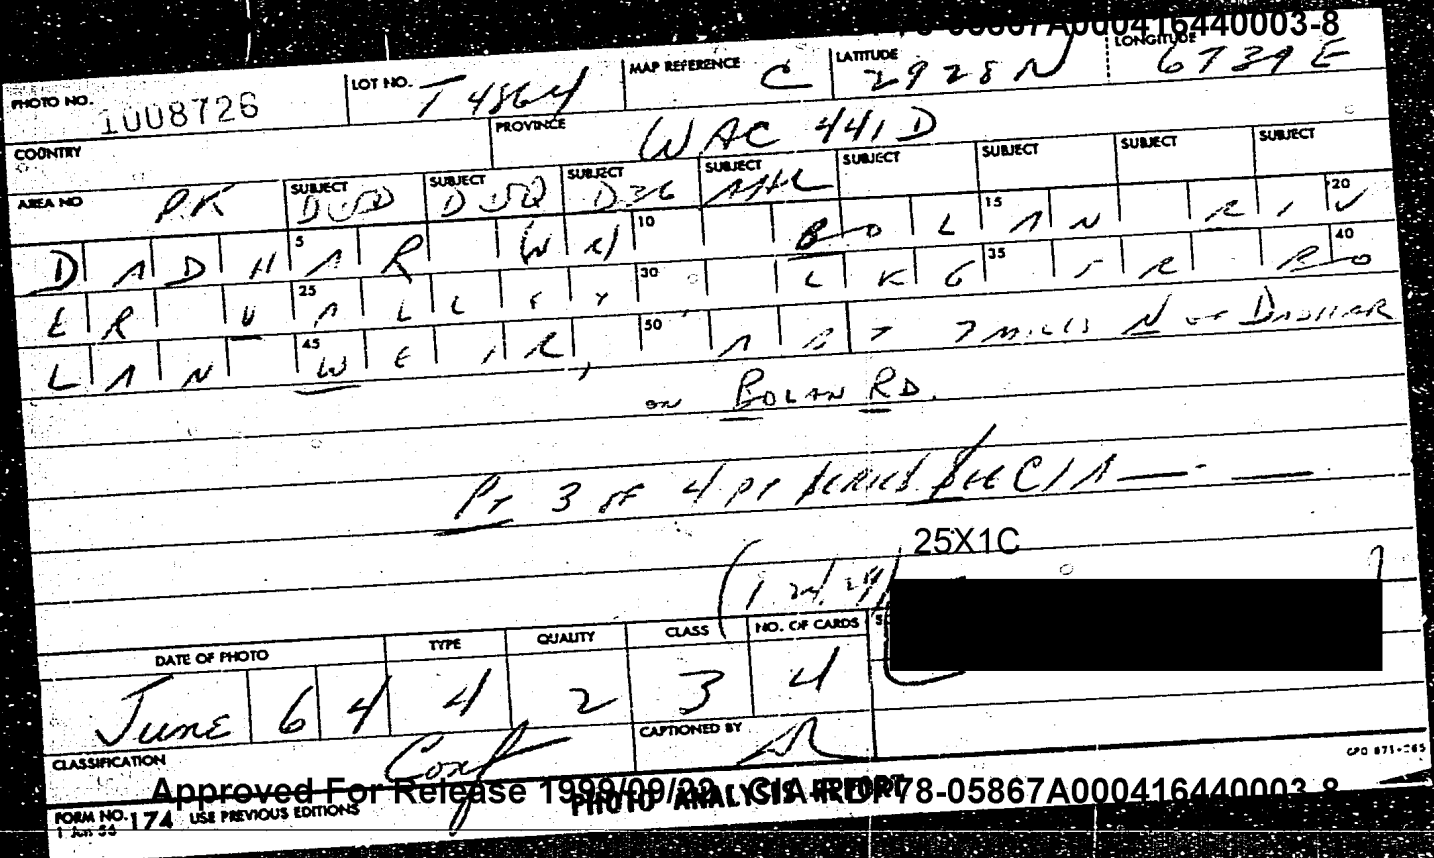 78-05867A000416440003-8
PHOTO NO. 1008726 LOT NO. T4864 MAP REFERENCE C LATITUDE 2928N LONGITUDE 6739E
COUNTRY PROVINCE WAC 441D
AREA NO PK SUBJECT DUD SUBJECT DUQ SUBJECT D36 SUBJECT AHL SUBJECT SUBJECT SUBJECT SUBJECT
DADHAR 5 W N 10 BOLAN 15 RIV 20
ER VALLEY 25 30 LKG 35 SR BO 40
LAN WEIR, 45 50 ABT 7 MILES N OF DADHAR
ON BOLAN RD.
PT 3 OF 4 PT SERIES SEE CIA — - —
25X1C
DATE OF PHOTO TYPE QUALITY CLASS NO. OF CARDS
June 64 4 2 3 4
CLASSIFICATION Conf CAPTIONED BY
GPO 871-265
Approved For Release 1999/09/22 : CIA-RDP78-05867A000416440003-8
PHOTO ANALYSIS REPORT
FORM NO. 174 USE PREVIOUS EDITIONS
1 Jun 56